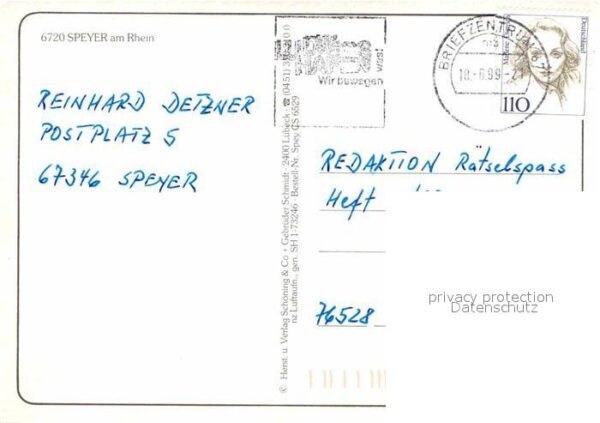 6720 SPEYER am Rhein
REINHARD DETZNER
POSTPLATZ 5
67346 SPEYER
Wir bewegen was!
BRIEFZENTRUM 67
18.-6.99-21
Deutschland
110
REDAKTION Rätselspass
Heft
76528
privacy protection
Datenschutz
© Herst. u. Verlag Schöning & Co + Gebrüder Schmidt · 2400 Lübeck · ☎ (0451)
nz Luftaufn., gen. SH 1-73246 · Bestell-Nr. Spey CS 6529